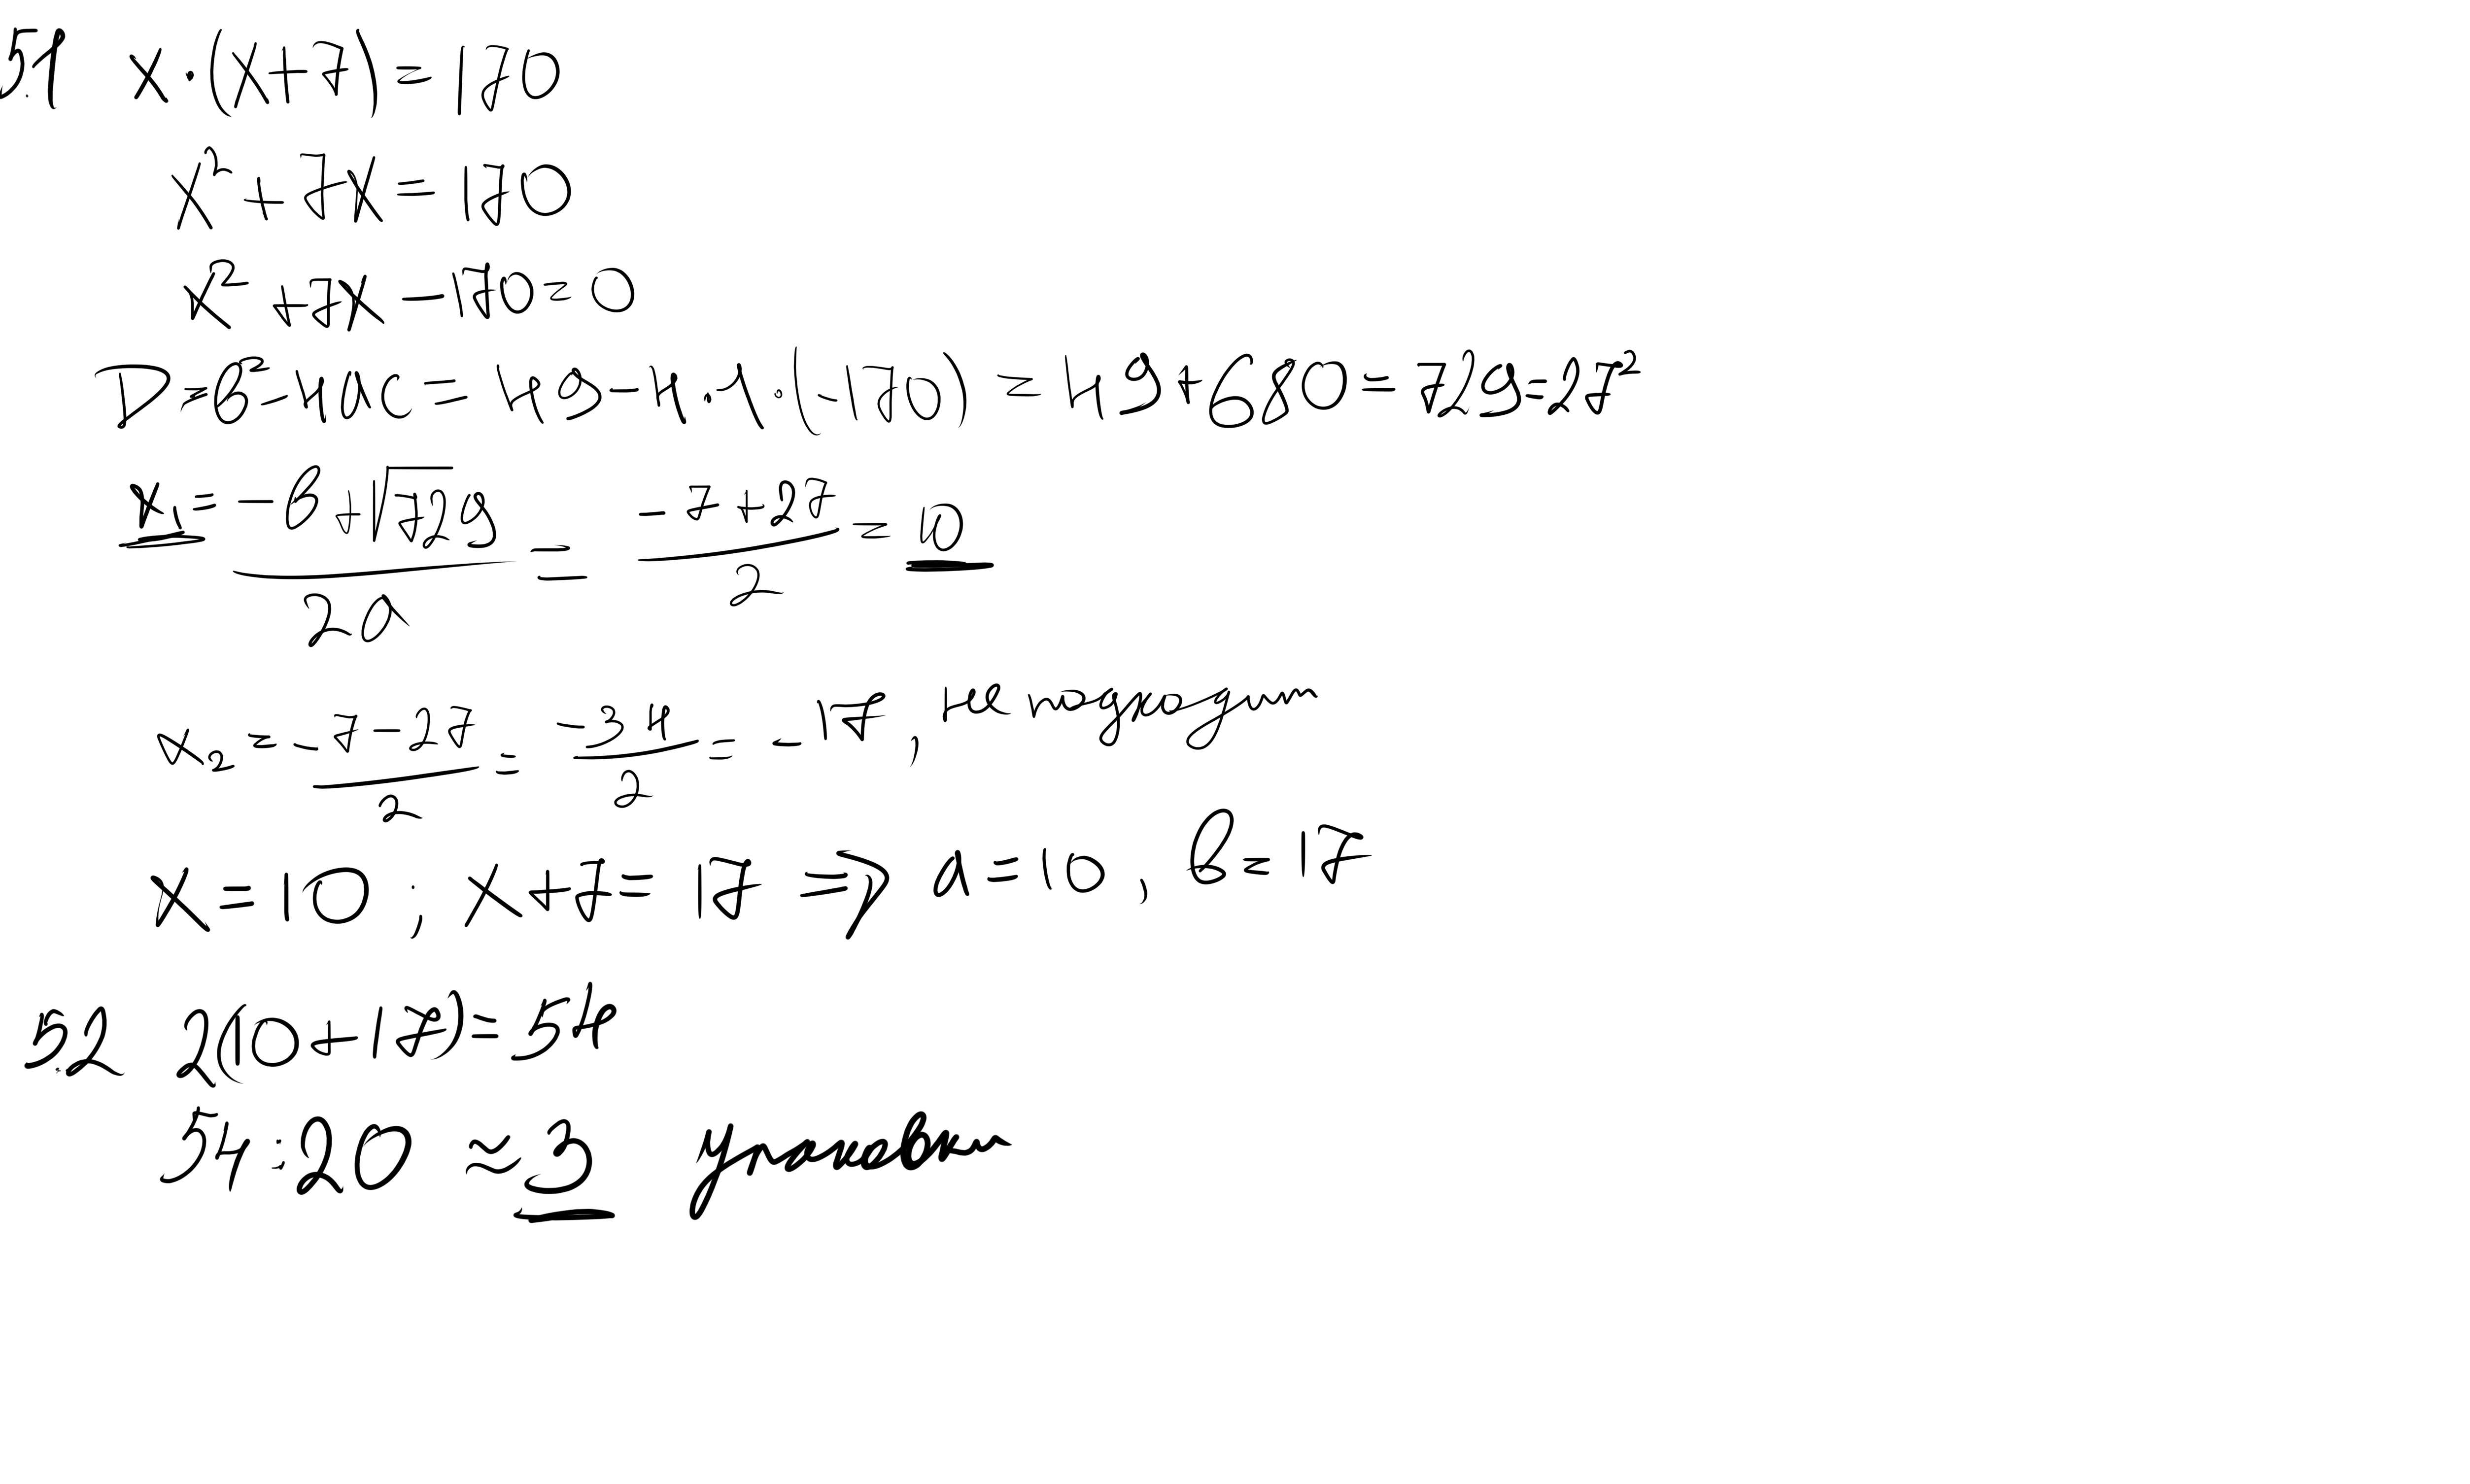 5.1 x·(x+7)=170
x²+7x=170
x²+7x-170=0
D=b²-4ac=49-4·1·(-170)=49+680=729=27²
x₁=(-b+√729)/2a=(-7+27)/2=10
x₂=(-7-27)/2=-34/2=-17, не подходит
x=10; x+7=17 => a=10, b=17
5.2 2(10+17)=54
54:20≈3 упаковки